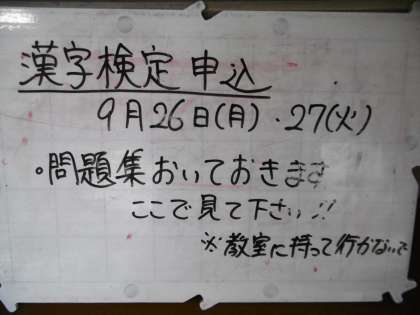 漢字検定申込
9月26日(月)・27(火)
。問題集おいておきます
ここで見て下さい!!
※教室に持って行かないで